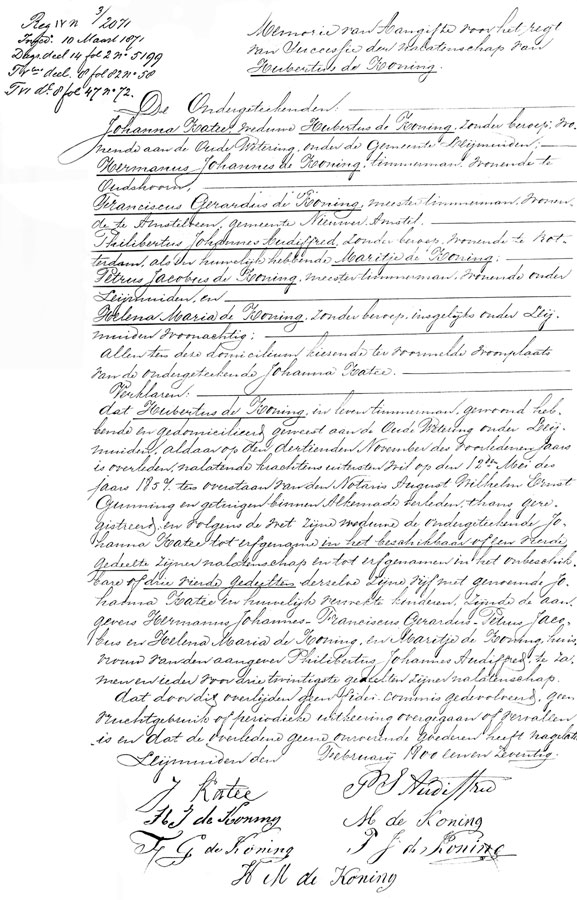 Reg IV n 3/2071
Ingek. 10 Maart 1871
Dagr. deel 14 fol 2 n° 5199
T IV deel 8 fol 82 n° 58
T VI d° 8 fol 47 n° 72.
Memorie van Aangifte voor het regt
van Successie der nalatenschap van
Hubertus de Koning.
De Ondergeteekenden:
Johanna Katee weduwe Hubertus de Koning, zonder beroep, wo-
nende aan de Oude Wetering, onder de Gemeente Leijmuiden;
Hermanus Johannes de Koning, timmerman, wonende te
Oudshoorn,
Franciscus Gerardus de Koning, meester timmerman, wonen-
de te Amstelveen, gemeente Nieuwer Amstel.
Philibertus Johannes Audiffred, zonder beroep, wonende te Rot-
terdam, als in huwelijk hebbende Maritje de Koning;
Petrus Jacobus de Koning, meester timmerman, wonende onder
Leijmuiden, en
Helena Maria de Koning, zonder beroep, insgelijks onder Leij-
muiden woonachtig;
allen ten deze domicilium kiezende ter voormelde woonplaats
van de ondergeteekende Johanna Katee.
Verklaren:
dat Hubertus de Koning, in leven timmerman, gewoond heb-
bende en gedomicilieerd geweest aan de Oude Wetering onder Leij-
muiden, aldaar op den dertienden November des voorleden jaars
is overleden, nalatende krachtens uitersten wil op den 12den Mei des
jaars 1857 ten overstaan van den Notaris August Wilhelm Ernst
Gunning en getuigen binnen Alkemade verleden, thans gere-
gistreerd, en volgens de wet zijne weduwe de ondergeteekende Jo-
hanna Katee tot erfgename in het beschikbaar of een vierde
gedeelte zijner nalatenschap en tot erfgenamen in het onbeschik-
bare of drie vierde gedeelten derzelve zijne vijf met genoemde Jo-
hanna Katee in huwelijk verwekte kinderen, zijnde de aan-
gevers Hermanus Johannes- Franciscus Gerardus- Petrus Jaco-
bus en Helena Maria de Koning, en Maritje de Koning, huis-
vrouw van den aangever Philibertus Johannes Audiffred, te za-
men en ieder voor drie twintigste gedeelten zijner nalatenschap.
dat door dit overlijden geen fidei commis gedevolveerd, geen
vruchtgebruik of periodieke uitkeering overgegaan of vervallen
is en dat de overledene geene onroerende goederen heeft nagelaten
Leijmuiden den Februarij 1800 een en Zeventig.
J Katee
P J Audiffred
H J de Koning
M de Koning
F G de Koning
P J de Koning
H M de Koning